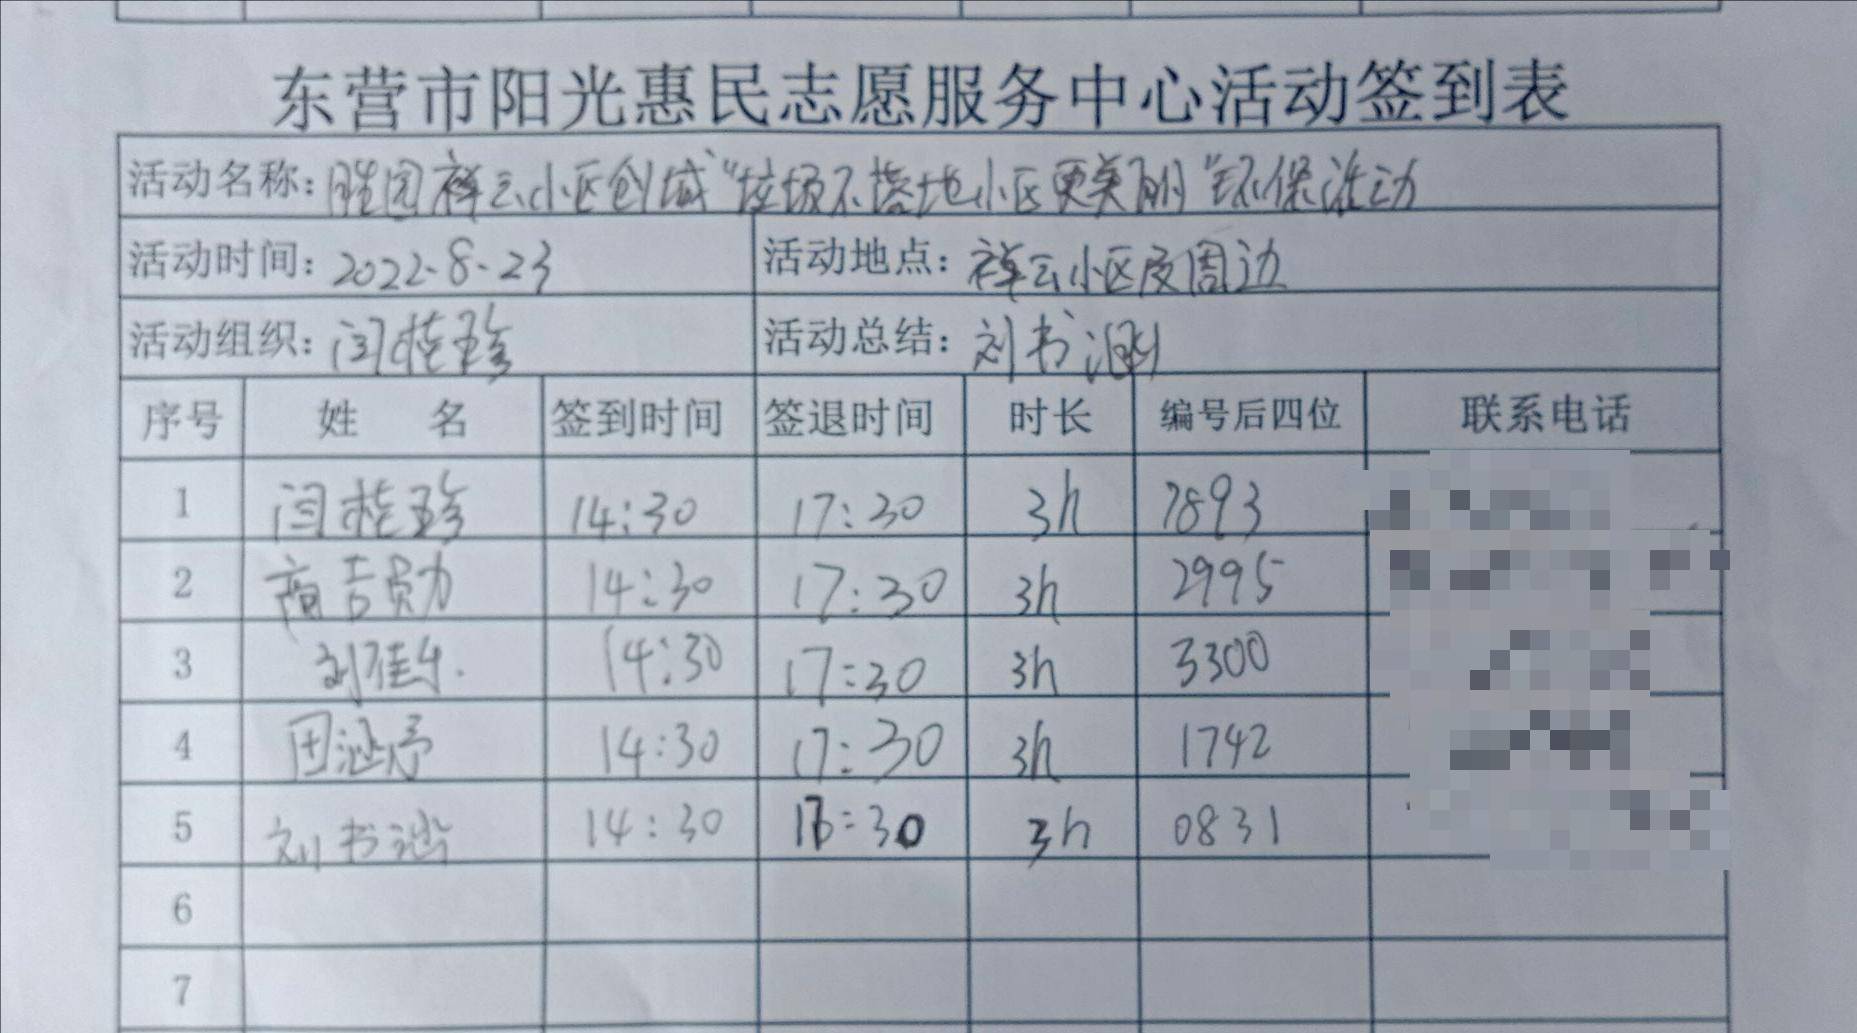 东营市阳光惠民志愿服务中心活动签到表
活动名称：胜园祥云小区创城“垃圾不落地小区更美丽”环保活动
活动时间：2022-8-23 活动地点：祥云小区及周边
活动组织：闫桂珍 活动总结：刘书涵
序号 姓 名 签到时间 签退时间 时长 编号后四位 联系电话
1 闫桂珍 14:30 17:30 3h 7893
2 商吉勋 14:30 17:30 3h 2995
3 刘佳乐 14:30 17:30 3h 3300
4 田涵予 14:30 17:30 3h 1742
5 刘书涵 14:30 17:30 3h 0831
6
7